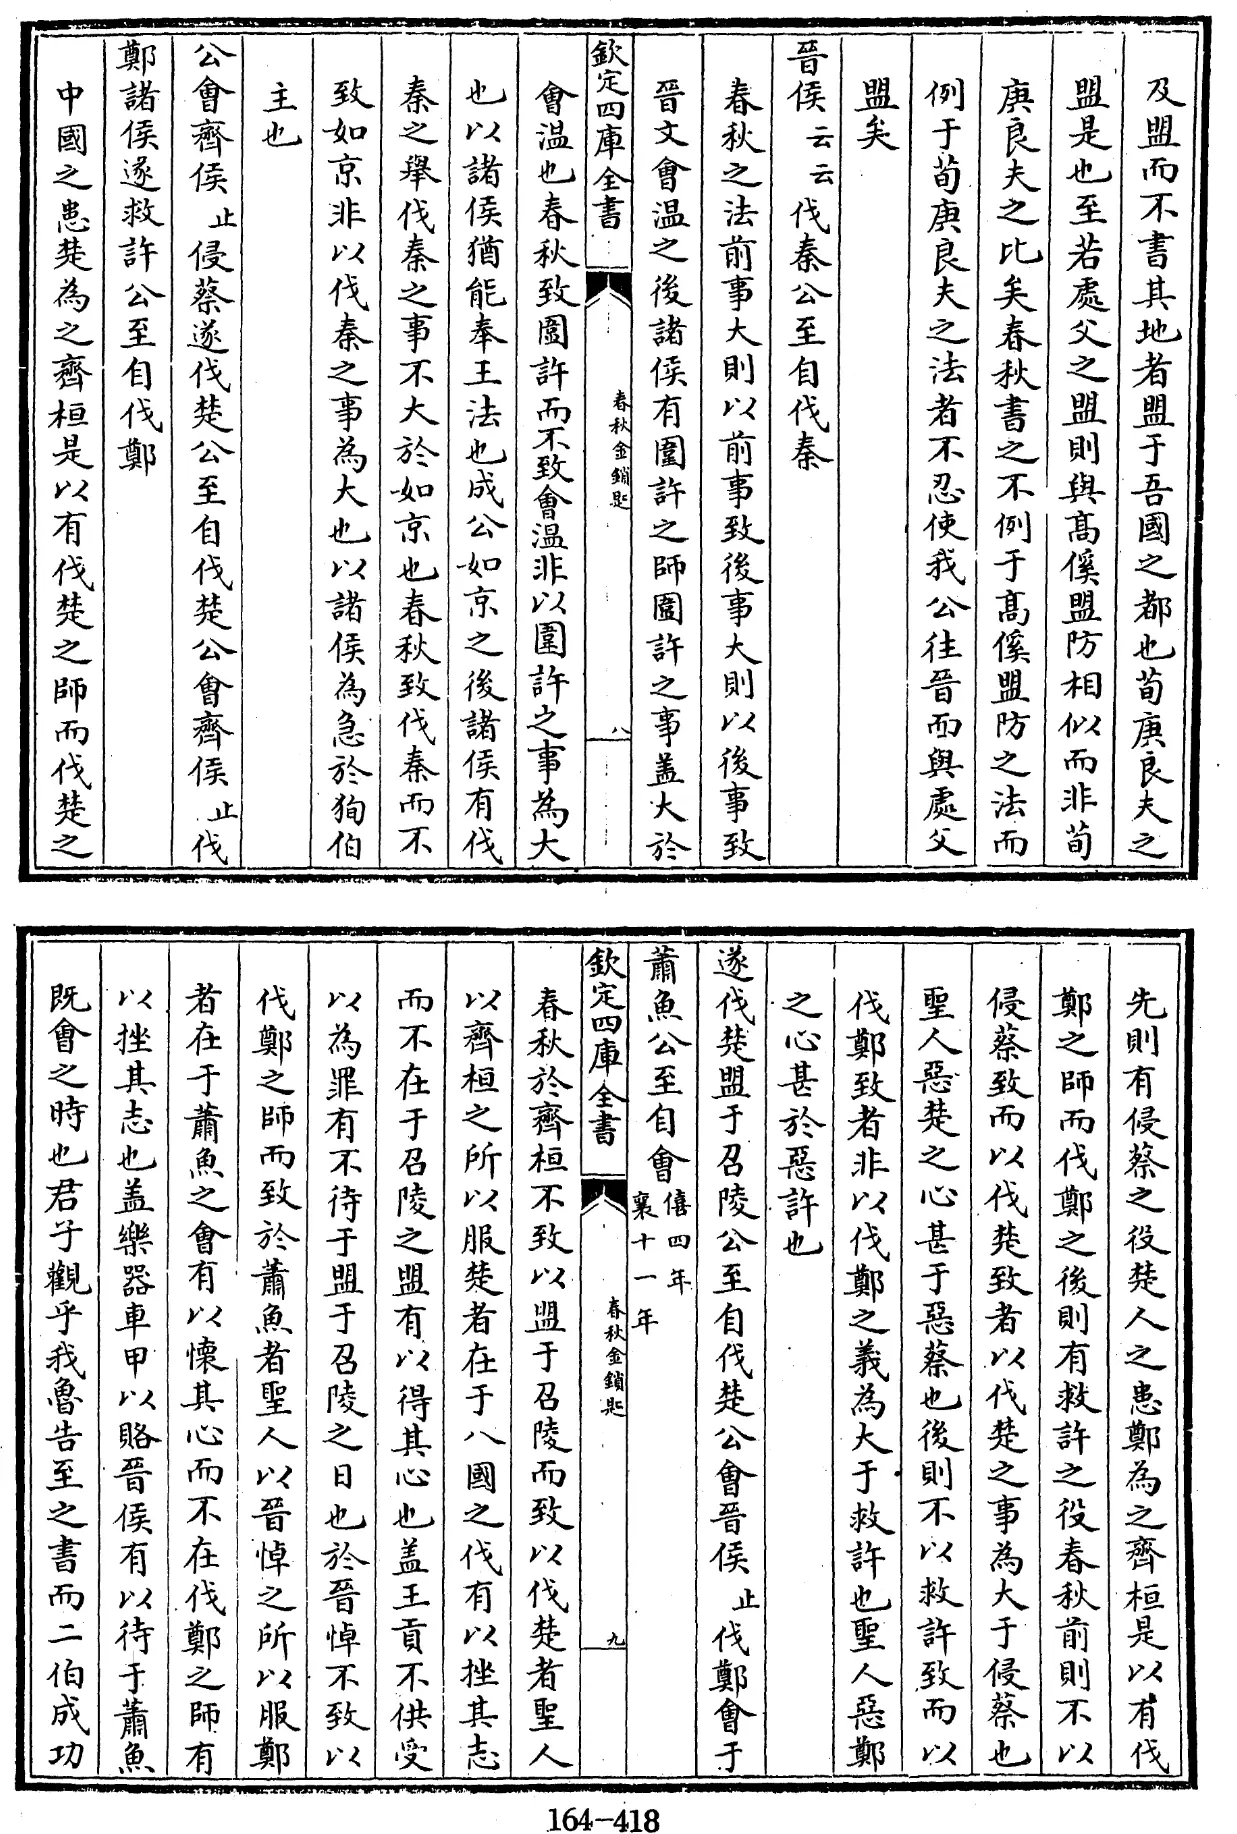 及盟而不書其地者盟于吾國之都也荀庚良夫之
盟是也至若處父之盟則與髙傒盟防相似而非荀
庚良夫之比矣春秋書之不例于髙傒盟防之法而
例于荀庚良夫之法者不忍使我公往晉而與處父
盟矣
晉侯云云伐秦公至自伐秦
春秋之法前事大則以前事致後事大則以後事致
晉文會温之後諸侯有圍許之師圍許之事盖大於
欽定四庫全書
春秋金鎖匙
八
會温也春秋致圍許而不致會温非以圍許之事為大
也以諸侯猶能奉王法也成公如京之後諸侯有伐
秦之舉伐秦之事不大於如京也春秋致伐秦而不
致如京非以伐秦之事為大也以諸侯為急於狥伯
主也
公會齊侯止侵蔡遂伐楚公至自伐楚公會齊侯止伐
鄭諸侯遂救許公至自伐鄭
中國之患楚為之齊桓是以有伐楚之師而伐楚之
先則有侵蔡之役楚人之患鄭為之齊桓是以有伐
鄭之師而伐鄭之後則有救許之役春秋前則不以
侵蔡致而以伐楚致者以伐楚之事為大于侵蔡也
聖人惡楚之心甚于惡蔡也後則不以救許致而以
伐鄭致者非以伐鄭之義為大于救許也聖人惡鄭
之心甚於惡許也
遂伐楚盟于召陵公至自伐楚公會晉侯止伐鄭會于
蕭魚公至自會僖四年襄十一年
欽定四庫全書
春秋金鎖匙
九
春秋於齊桓不致以盟于召陵而致以伐楚者聖人
以齊桓之所以服楚者在于八國之伐有以挫其志
而不在于召陵之盟有以得其心也盖王貢不供受
以為罪有不待于盟于召陵之日也於晉悼不致以
伐鄭之師而致於蕭魚者聖人以晉悼之所以服鄭
者在于蕭魚之會有以懷其心而不在伐鄭之師有
以挫其志也盖樂器車甲以賂晉侯有以待于蕭魚
既會之時也君子觀乎我魯告至之書而二伯成功
164-418